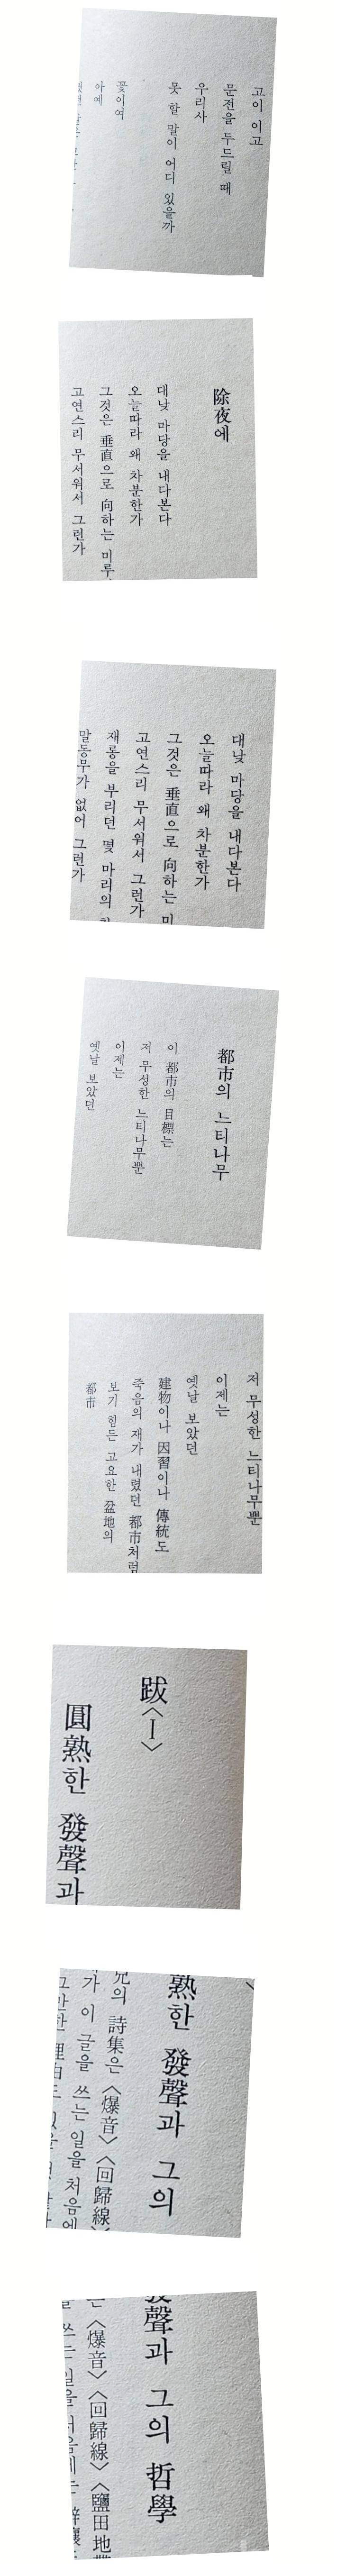 고이 이고
문전을 두드릴 때
우리사
못 할 말이 어디 있을까
꽃이여
아예
除夜에
대낮 마당을 내다본다
오늘따라 왜 차분한가
그것은 垂直으로 向하는 미루
고연스리 무서워서 그런가
대낮 마당을 내다본다
오늘따라 왜 차분한가
그것은 垂直으로 向하는 미
고연스리 무서워서 그런가
재롱을 부리던 몇 마리의
말동무가 없어 그런가
都市의 느티나무
이 都市의 目標는
저 무성한 느티나무뿐
이제는
옛날 보았던
저 무성한 느티나무뿐
이제는
옛날 보았던
建物이나 因習이나 傳統도
죽음의 재가 내렸던 都市처럼
보기 힘든 고요한 盆地의
都市
跋〈Ⅰ〉
圓熟한 發聲과
熟한 發聲과 그의
兄의 詩集은〈爆音〉〈回歸線〉
가 이 글을 쓰는 일을 처음에
發聲과 그의 哲學
은〈爆音〉〈回歸線〉〈鹽田地
쓰는 일을 처음에는